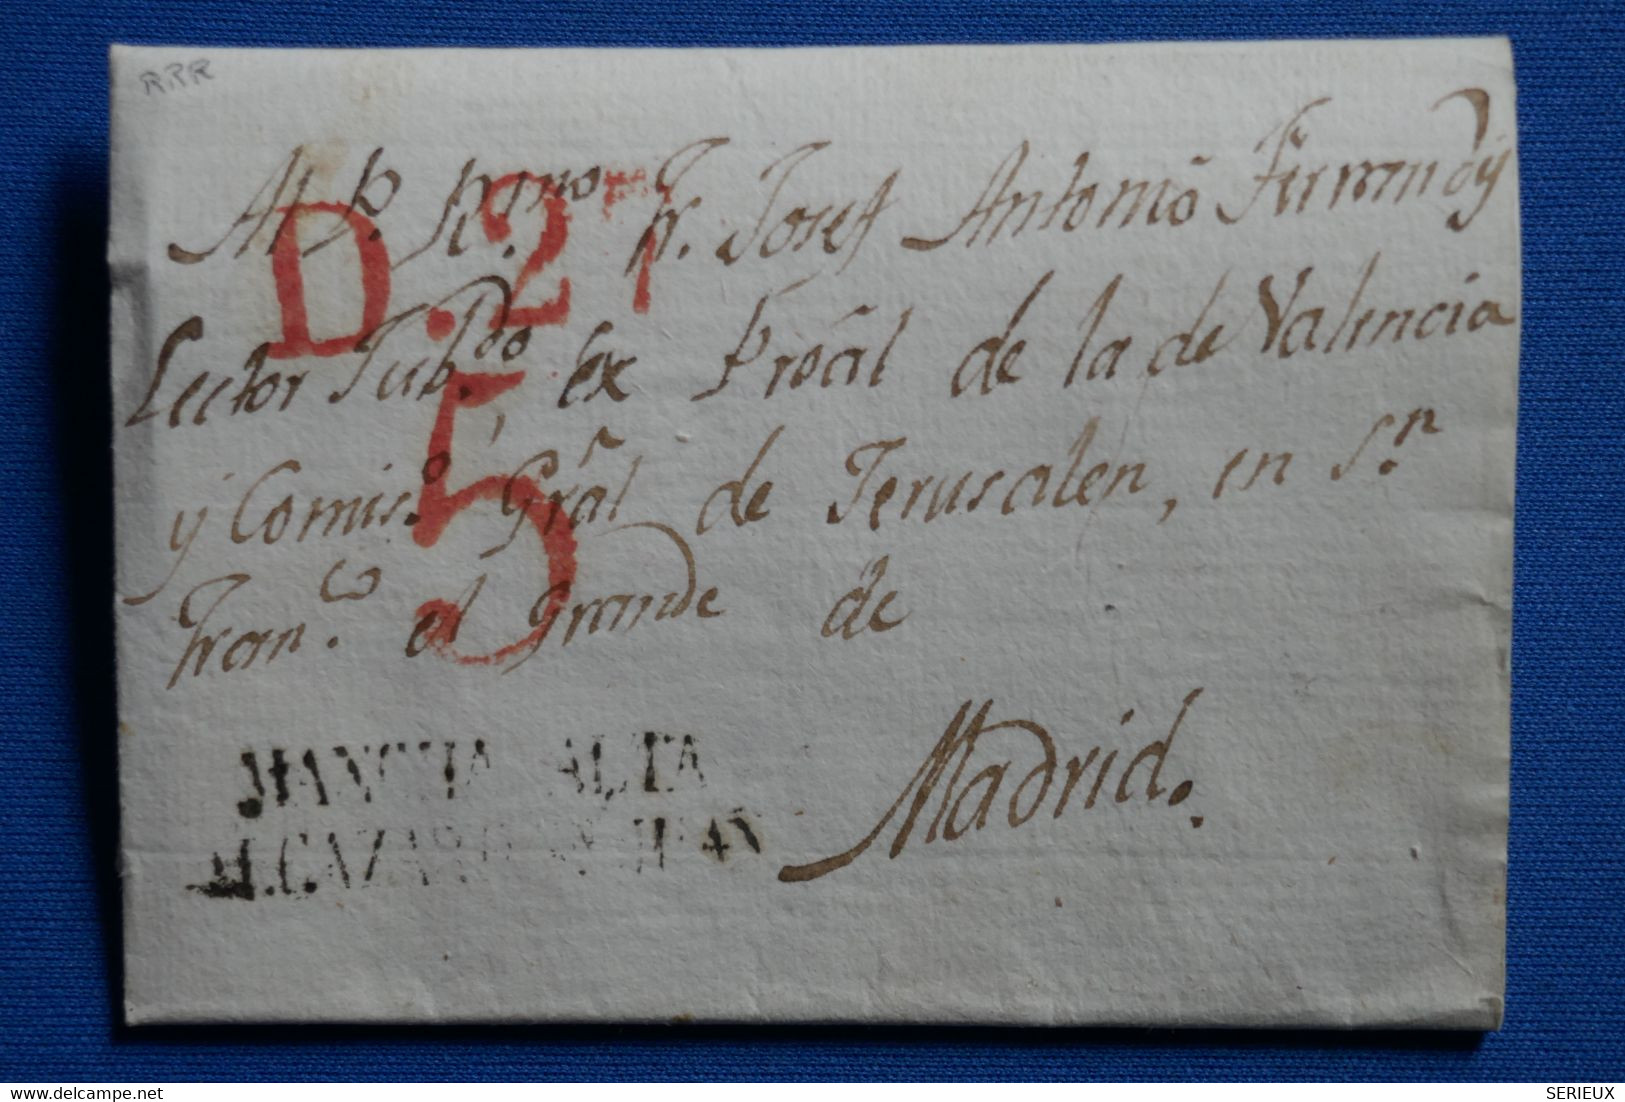 RRR
Al P. R.mo Fr. Josef Antonio Ferrandy
D. 27
Lector Jub.do ex Proâl de la de Valencia
5
y Comis.o Grâl de Jerusalen, en S.n
Fran.co el grande de
Madrid.
MANCHA ALTA
ALCAZAR JUAN
SERIEUX
www.delcampe.net